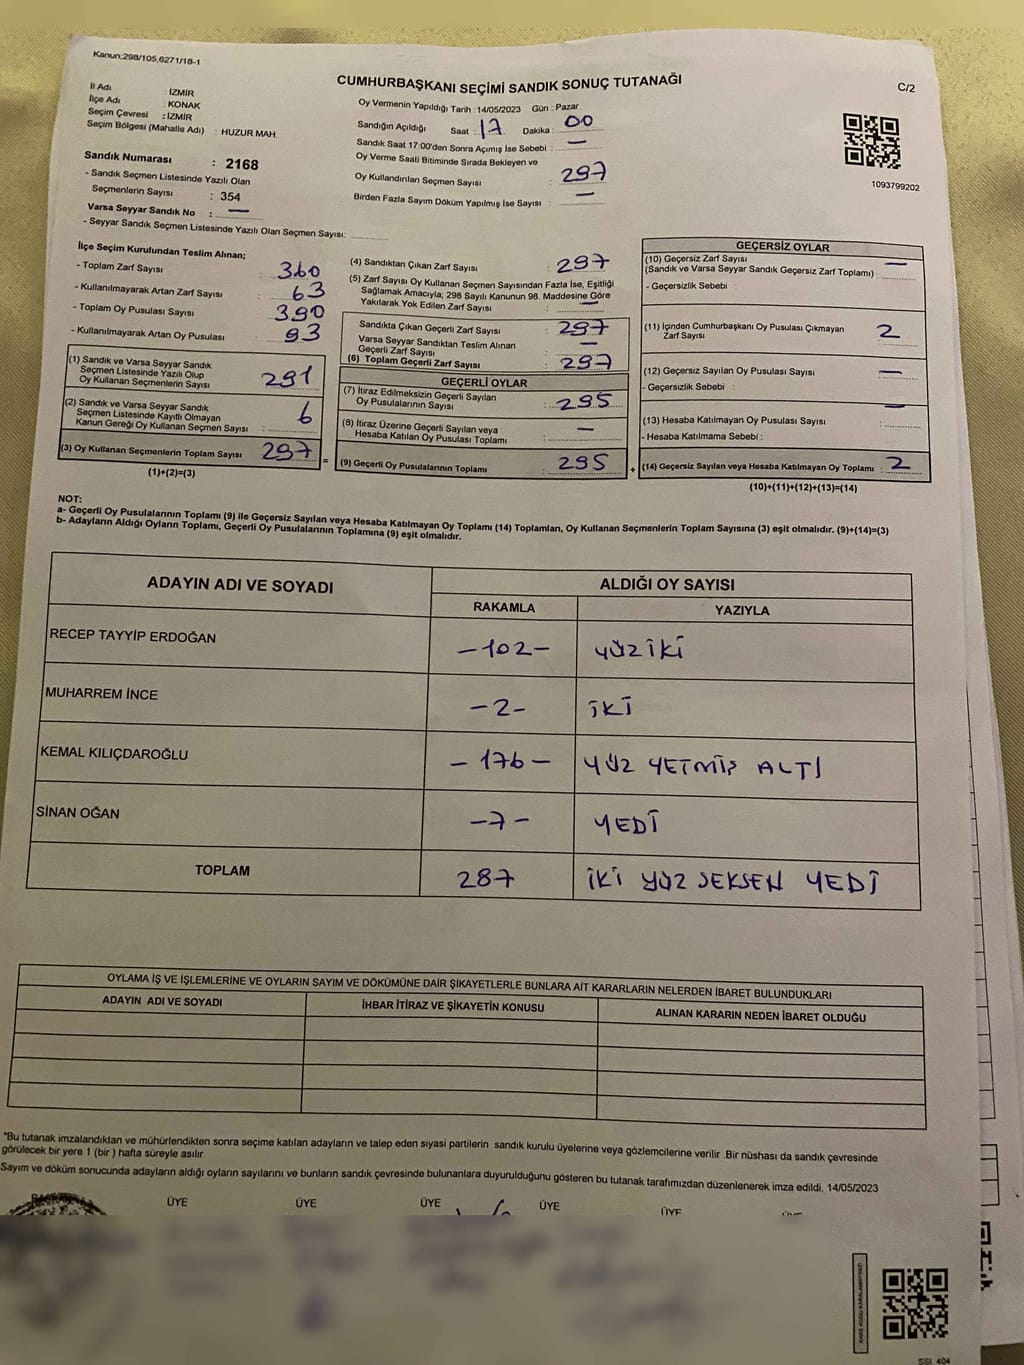 Kanun:298/105,6271/18-1
CUMHURBAŞKANI SEÇİMİ SANDIK SONUÇ TUTANAĞI
C/2
İl Adı : İZMİR
İlçe Adı : KONAK
Seçim Çevresi : İZMİR
Seçim Bölgesi (Mahalle Adı) : HUZUR MAH.
Sandık Numarası : 2168
- Sandık Seçmen Listesinde Yazılı Olan
Seçmenlerin Sayısı : 354
Varsa Seyyar Sandık No : —
- Seyyar Sandık Seçmen Listesinde Yazılı Olan Seçmen Sayısı:
Oy Vermenin Yapıldığı Tarih : 14/05/2023 Gün : Pazar
Sandığın Açıldığı Saat : 17 Dakika : 00
Sandık Saat 17:00'den Sonra Açımış İse Sebebi : —
Oy Verme Saati Bitiminde Sırada Bekleyen ve
Oy Kullandırılan Seçmen Sayısı : 297
Birden Fazla Sayım Döküm Yapılmış İse Sayısı : —
1093799202
İlçe Seçim Kurulundan Teslim Alınan;
- Toplam Zarf Sayısı : 360
- Kullanılmayarak Artan Zarf Sayısı : 63
- Toplam Oy Pusulası Sayısı : 390
- Kullanılmayarak Artan Oy Pusulası : 93
(1) Sandık ve Varsa Seyyar Sandık
Seçmen Listesinde Yazılı Olup
Oy Kullanan Seçmenlerin Sayısı 291
(2) Sandık ve Varsa Seyyar Sandık
Seçmen Listesinde Kayıtlı Olmayan
Kanun Gereği Oy Kullanan Seçmen Sayısı : 6
(3) Oy Kullanan Seçmenlerin Toplam Sayısı 297
(1)+(2)=(3)
(4) Sandıktan Çıkan Zarf Sayısı : 297
(5) Zarf Sayısı Oy Kullanan Seçmen Sayısından Fazla İse, Eşitliği
Sağlamak Amacıyla; 298 Sayılı Kanunun 98. Maddesine Göre
Yakılarak Yok Edilen Zarf Sayısı : —
Sandıkta Çıkan Geçerli Zarf Sayısı : 297
Varsa Seyyar Sandıktan Teslim Alınan
Geçerli Zarf Sayısı : —
(6) Toplam Geçerli Zarf Sayısı : 297
GEÇERLİ OYLAR
(7) İtiraz Edilmeksizin Geçerli Sayılan
Oy Pusulalarının Sayısı : 295
(8) İtiraz Üzerine Geçerli Sayılan veya
Hesaba Katılan Oy Pusulası Toplamı : —
(9) Geçerli Oy Pusulalarının Toplamı : 295
GEÇERSİZ OYLAR
(10) Geçersiz Zarf Sayısı —
(Sandık ve Varsa Seyyar Sandık Geçersiz Zarf Toplamı)
- Geçersizlik Sebebi :
(11) İçinden Cumhurbaşkanı Oy Pusulası Çıkmayan
Zarf Sayısı 2
(12) Geçersiz Sayılan Oy Pusulası Sayısı —
- Geçersizlik Sebebi :
(13) Hesaba Katılmayan Oy Pusulası Sayısı : —
- Hesaba Katılmama Sebebi :
(14) Geçersiz Sayılan veya Hesaba Katılmayan Oy Toplamı : 2
(10)+(11)+(12)+(13)=(14)
NOT:
a- Geçerli Oy Pusulalarının Toplamı (9) ile Geçersiz Sayılan veya Hesaba Katılmayan Oy Toplamı (14) Toplamları, Oy Kullanan Seçmenlerin Toplam Sayısına (3) eşit olmalıdır. (9)+(14)=(3)
b- Adayların Aldığı Oyların Toplamı, Geçerli Oy Pusulalarının Toplamına (9) eşit olmalıdır.
ADAYIN ADI VE SOYADI
ALDIĞI OY SAYISI
RAKAMLA YAZIYLA
RECEP TAYYİP ERDOĞAN -102- YÜZ İKİ
MUHARREM İNCE -2- İKİ
KEMAL KILIÇDAROĞLU -176- YÜZ YETMİŞ ALTI
SİNAN OĞAN -7- YEDİ
TOPLAM 287 İKİ YÜZ SEKSEN YEDİ
OYLAMA İŞ VE İŞLEMLERİNE VE OYLARIN SAYIM VE DÖKÜMÜNE DAİR ŞİKAYETLERLE BUNLARA AİT KARARLARIN NELERDEN İBARET BULUNDUKLARI
ADAYIN ADI VE SOYADI İHBAR İTİRAZ VE ŞİKAYETİN KONUSU ALINAN KARARIN NEDEN İBARET OLDUĞU
*Bu tutanak imzalandıktan ve mühürlendikten sonra seçime katılan adayların ve talep eden siyasi partilerin sandık kurulu üyelerine veya gözlemcilerine verilir .Bir nüshası da sandık çevresinde
görülecek bir yere 1 (bir ) hafta süreyle asılır.
Sayım ve döküm sonucunda adayların aldığı oyların sayılarını ve bunların sandık çevresinde bulunanlara duyurulduğunu gösteren bu tutanak tarafımızdan düzenlenerek imza edildi. 14/05/2023
BAŞKAN ÜYE ÜYE ÜYE ÜYE ÜYE ÜYE
SSI 404